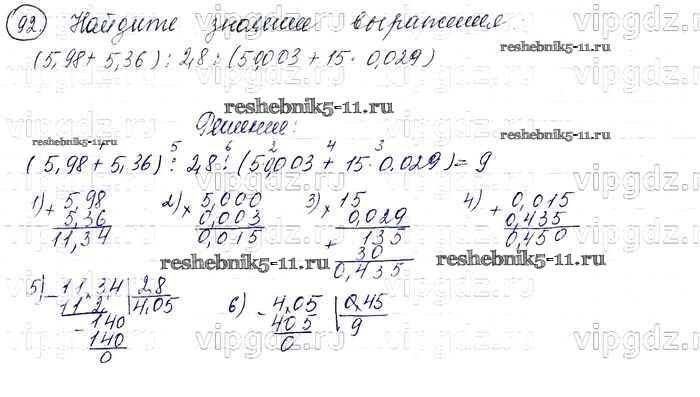 92 Найдите значение выражения
(5,98 + 5,36) : 2,8 : (5·0,003 + 15 · 0,029)
reshebnik5-11.ru
Решение:
reshebnik5-11.ru
5 6 2 4 3
(5,98 + 5,36) : 2,8 : (5·0,003 + 15 · 0,029) = 9
reshebnik5-11.ru
1) + 5,98 2) × 5,000 3) × 15 4) + 0,015
5,36 0,003 0,029 0,435
11,34 0,015 + 135 0,450
30
reshebnik5-11.ru
reshebnik5-11.ru
0,435
5) - 11,34 | 2,8 6) - 4,05 | 0,45
112 | 4,05 405 | 9
- 140 0
140
0
vipgdz.ru
vipgdz.ru
vipgdz.ru
vipgdz.ru
vipgdz.ru
vipgdz.ru